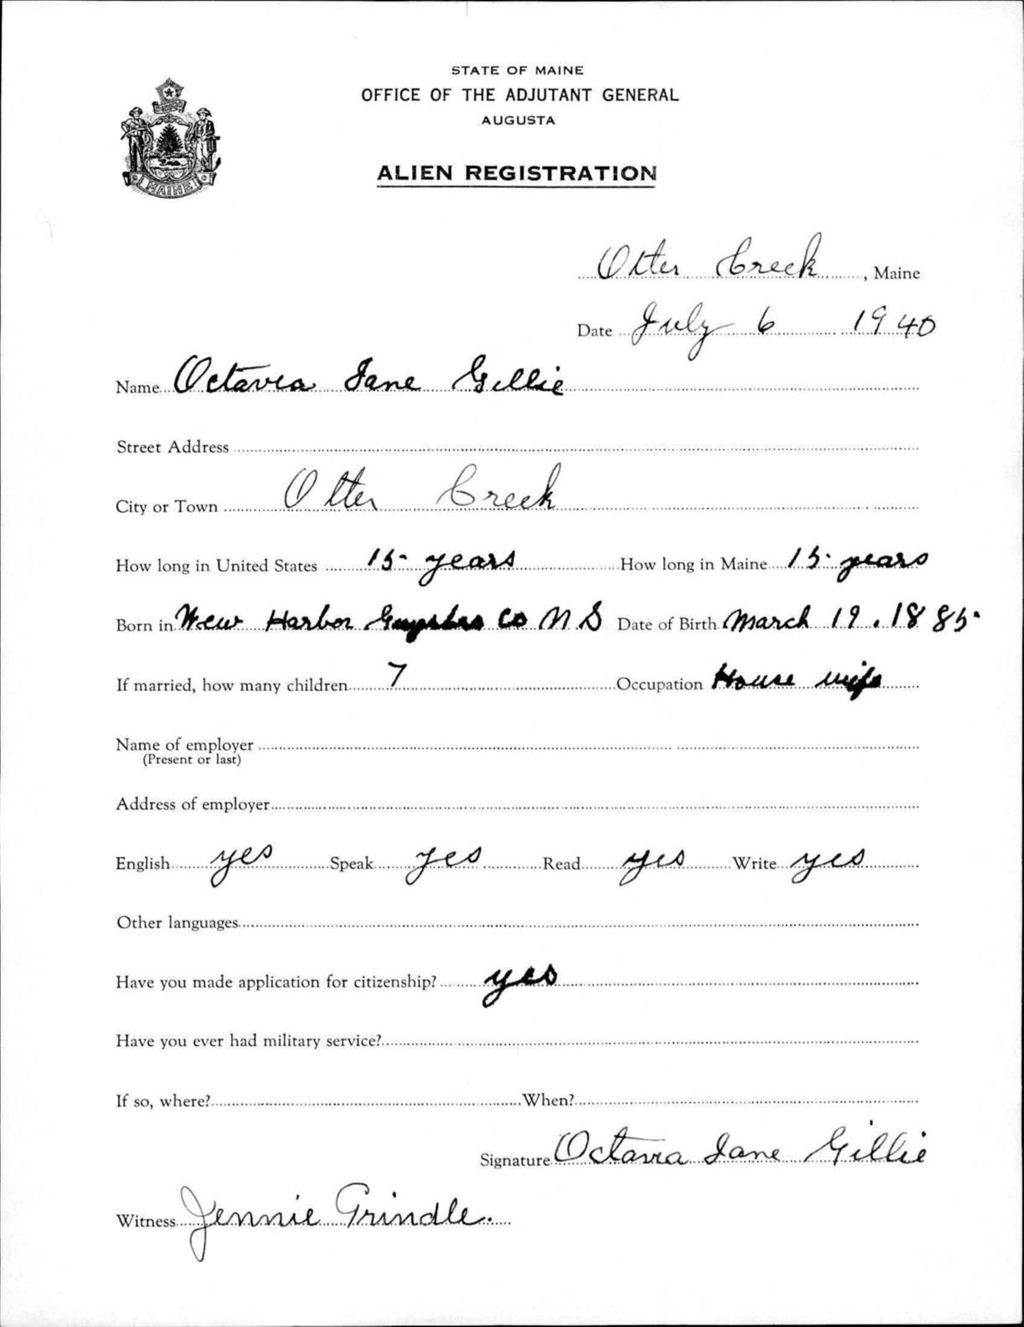 STATE OF MAINE
OFFICE OF THE ADJUTANT GENERAL
AUGUSTA
ALIEN REGISTRATION
MAINE
Otter Creek, Maine
Date July 6 1940
Name Octavia Jane Gillie
Street Address
City or Town Otter Creek
How long in United States 15 years How long in Maine 15 years
Born in New Harbor Co N S Date of Birth March 19, 1885
If married, how many children 7 Occupation House wife
Name of employer
(Present or last)
Address of employer
English yes Speak yes Read yes Write yes
Other languages
Have you made application for citizenship? yes
Have you ever had military service?
If so, where? When?
Signature Octavia Jane Gillie
Witness Jennie Grindle.